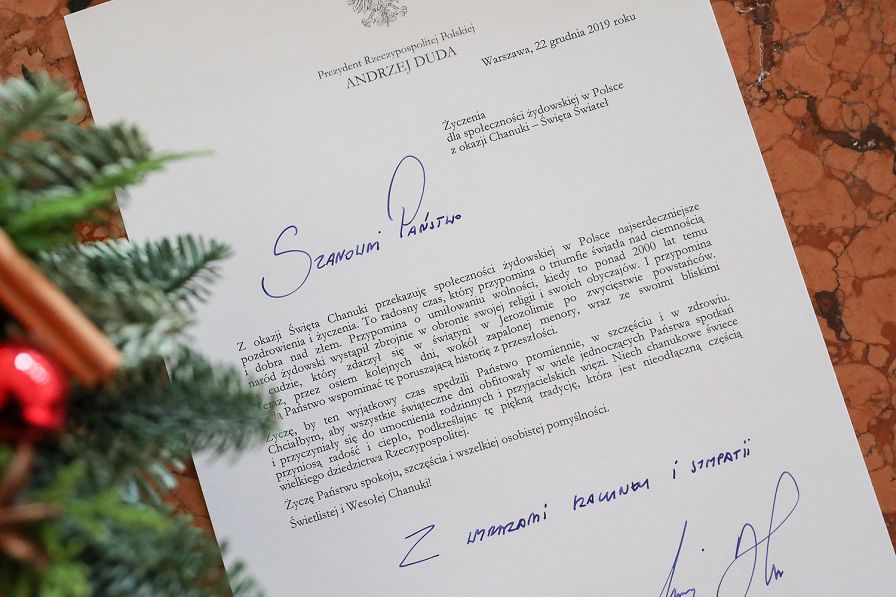 Prezydent Rzeczypospolitej Polskiej
ANDRZEJ DUDA
Warszawa, 22 grudnia 2019 roku
Życzenia
dla społeczności żydowskiej w Polsce
z okazji Chanuki – Święta Świateł
Szanowni Państwo
Z okazji Święta Chanuki przekazuję społeczności żydowskiej w Polsce najserdeczniejsze
pozdrowienia i życzenia. To radosny czas, który przypomina o triumfie światła nad ciemnością
i dobra nad złem. Przypomina o umiłowaniu wolności, kiedy to ponad 2000 lat temu
naród żydowski wystąpił zbrojnie w obronie swojej religii i swoich obyczajów. I przypomina
cudzie, który zdarzył się w świątyni w Jerozolimie po zwycięstwie powstańców.
przez osiem kolejnych dni, wokół zapalonej menory, wraz ze swoimi bliskimi
Państwo wspominać tę poruszającą historię z przeszłości.
Życzę, by ten wyjątkowy czas spędzili Państwo promiennie, w szczęściu i w zdrowiu.
Chciałbym, aby wszystkie świąteczne dni obfitowały w wiele jednoczących Państwa spotkań
i przyczyniały się do umocnienia rodzinnych i przyjacielskich więzi. Niech chanukowe świece
przyniosą radość i ciepło, podkreślając tę piękną tradycję, która jest nieodłączną częścią
wielkiego dziedzictwa Rzeczypospolitej.
Życzę Państwu spokoju, szczęścia i wszelkiej osobistej pomyślności.
Świetlistej i Wesołej Chanuki!
Z wyrazami szacunku i sympatii